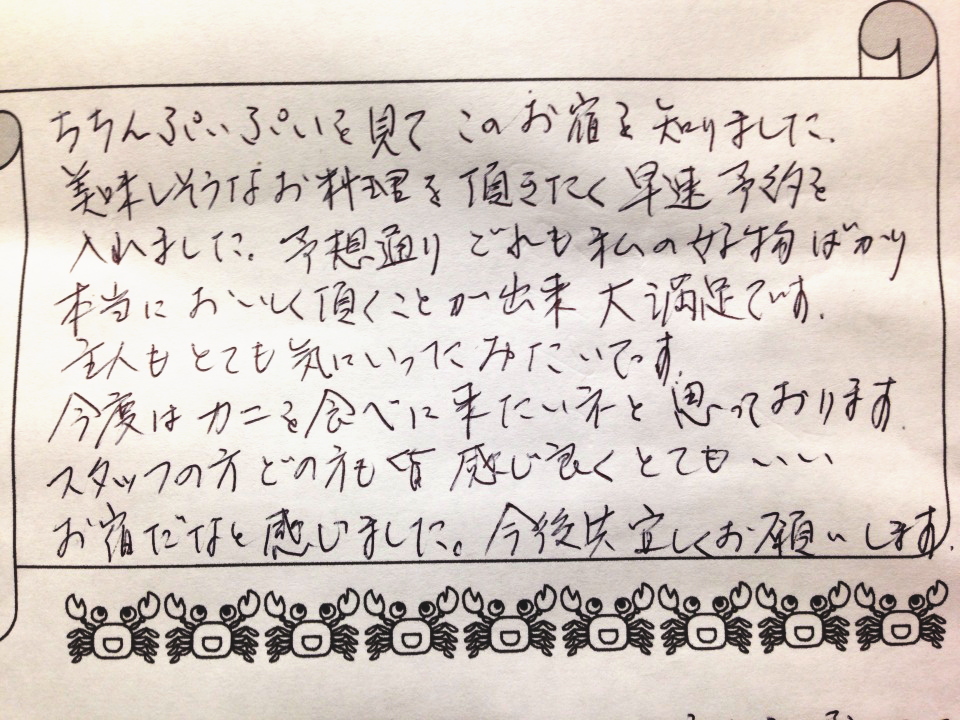 ちちんぷいぷいを見て このお宿を 知りました。
美味しそうなお料理を 頂きたく 早速 予約を
入れました。予想通り どれも 私の好物ばかり
本当に おいしく頂くことが出来 大満足です。
主人も とても 気にいったみたいです。
今度は カニを食べに 来たいネと 思っております。
スタッフの方 どの方も 皆 感じ良く とても いい
お宿だなと 感じました。今後共 宜しくお願いします。